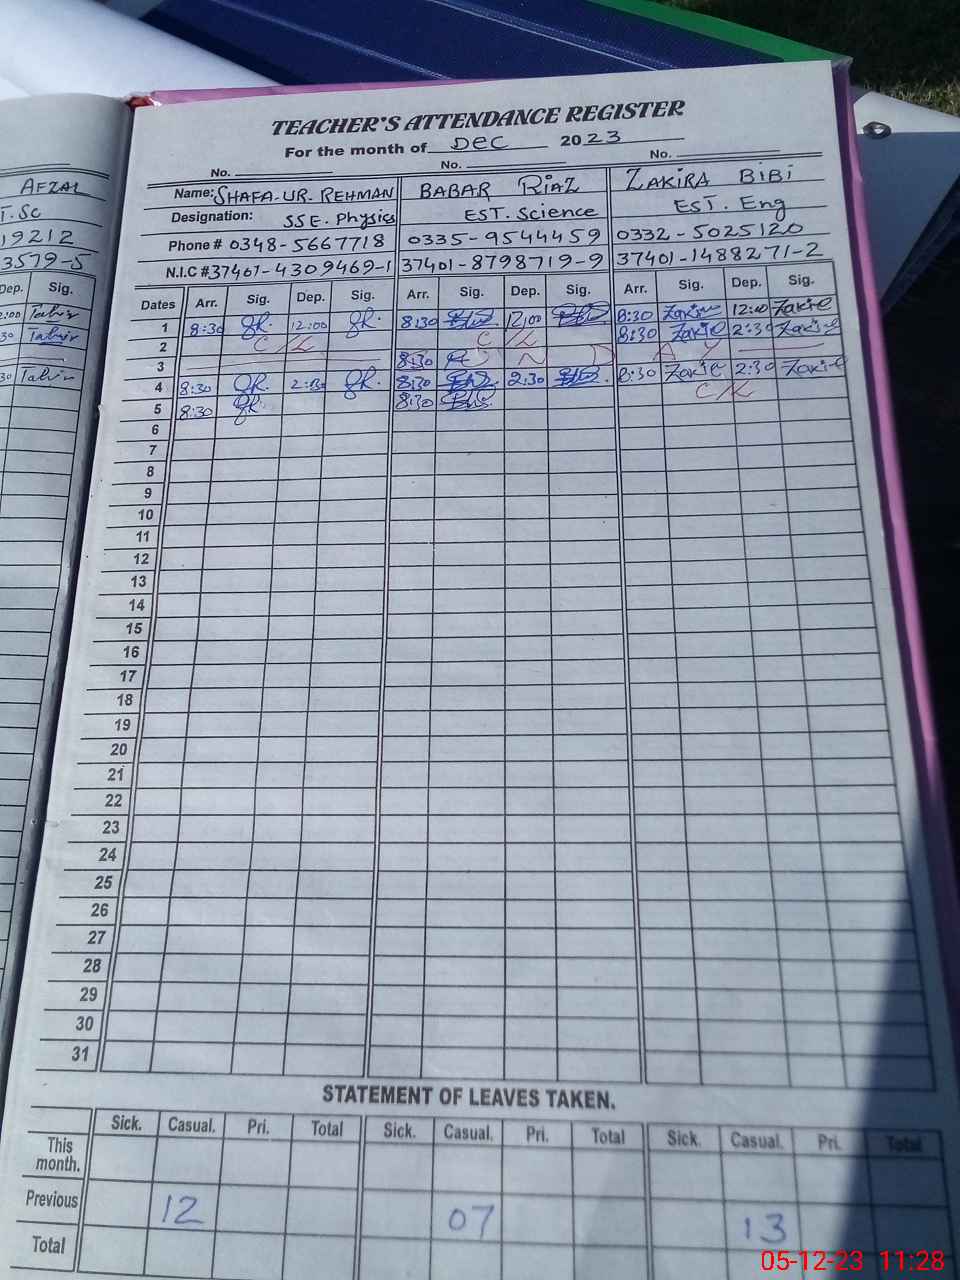 AFZAL
T.Sc
19212
3579-5
Dep. Sig.
2:00 Tahir
30 Tahir
30 Tahir
TEACHER'S ATTENDANCE REGISTER
For the month of Dec 2023
No. No. No.
Name: SHAFA-UR-REHMAN BABAR RIAZ ZAKIRA BIBI
Designation: SSE. Physics EST. Science EST. Eng
Phone # 0348-5667718 0335-9544459 0332-5025120
N.I.C # 37401-4309469-1 37401-8798719-9 37401-1488271-2
Dates Arr. Sig. Dep. Sig. Arr. Sig. Dep. Sig. Arr. Sig. Dep. Sig.
8:30 Zakire 12:00 Zakire
1 8:30 12:00 8:30 12:00 8:30 Zakire 2:30 Zakire
2 C/L C/L
3 8:30 N D A Y
4 8:30 2:30 8:30 2:30 8:30 Zakire 2:30 Zakire
5 8:30 8:30 C/L
6
7
8
9
10
11
12
13
14
15
16
17
18
19
20
21
22
23
24
25
26
27
28
29
30
31
STATEMENT OF LEAVES TAKEN.
Sick. Casual. Pri. Total Sick. Casual. Pri. Total Sick. Casual. Pri. Total
This month.
Previous 12 07 13
Total
05-12-23 11:28